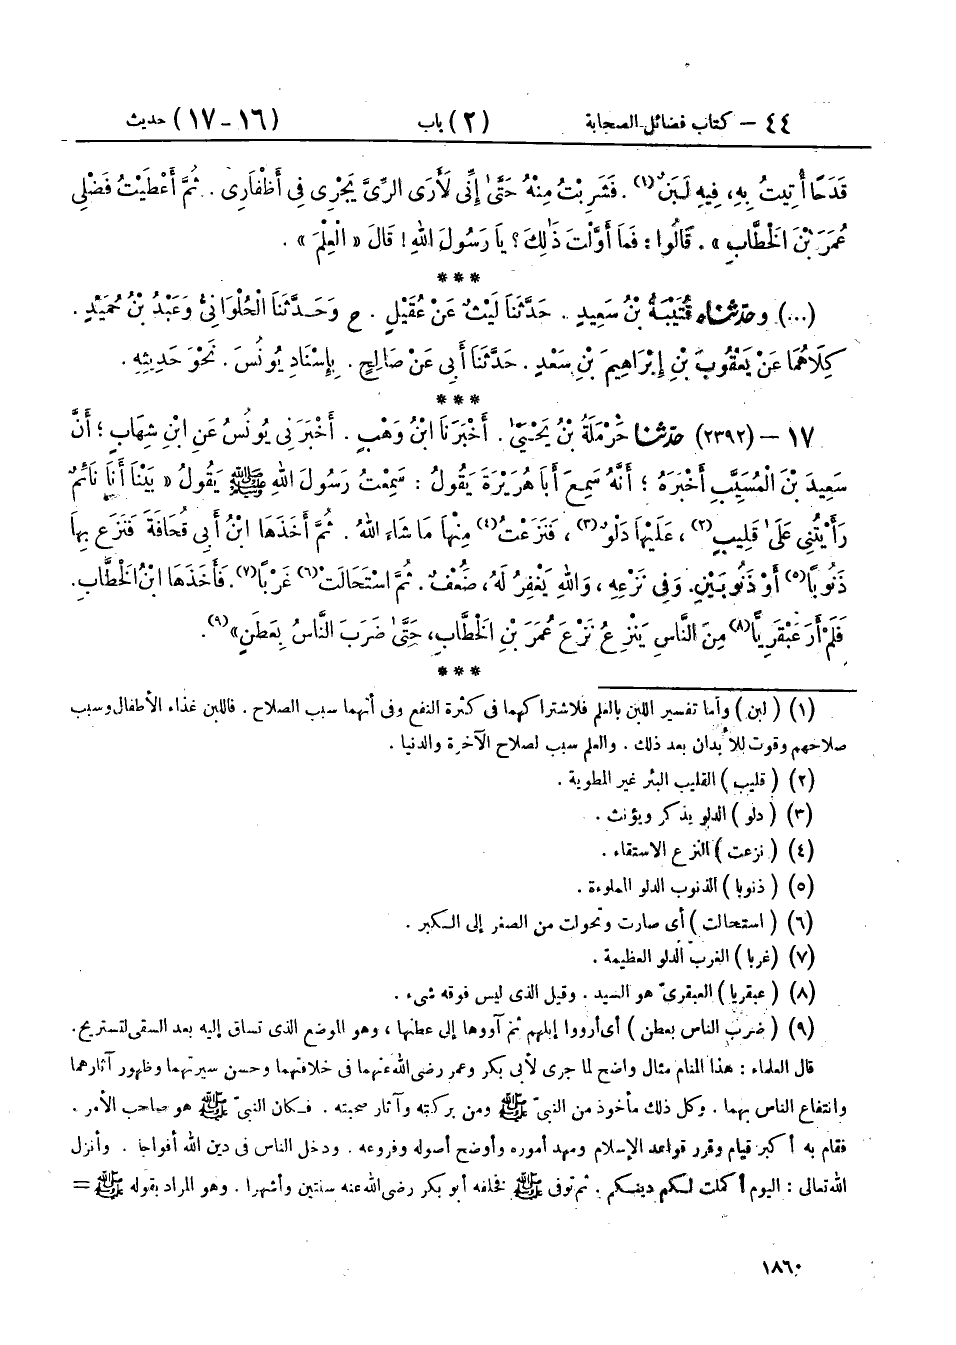 ٤٤ – كتاب فضائل الصحابة (٢) باب (١٦-١٧) حديث
قَدَحًا أُتِيتُ بِهِ، فِيهِ لَبَنٌ(١). فَشَرِبْتُ مِنْهُ حَتَّىٰ إِنِّي لَأَرَى الرِّيَّ يَجْرِي فِي أَظْفَارِي. ثُمَّ أَعْطَيْتُ فَضْلِي
عُمَرَ بْنَ الْخَطَّابِ». قَالُوا: فَمَا أَوَّلْتَ ذَٰلِكَ؟ يَا رَسُولَ اللهِ! قَالَ «الْعِلْمَ».
***
(...) وحَدَّثَنَاه قُتَيْبَةُ بْنُ سَعِيدٍ. حَدَّثَنَا لَيْثٌ عَنْ عُقَيْلٍ. ح وَحَدَّثَنَا الْحُلْوَانِيُّ وَعَبْدُ بْنُ حُمَيْدٍ.
كِلَاهُمَا عَنْ يَعْقُوبَ بْنِ إِبْرَاهِيمَ بْنِ سَعْدٍ. حَدَّثَنَا أَبِي عَنْ صَالِحٍ. بِإِسْنَادِ يُونُسَ. نَحْوَ حَدِيثِهِ.
***
١٧ – (٢٣٩٢) حَدَّثَنَا حَرْمَلَةُ بْنُ يَحْيَىٰ. أَخْبَرَنَا ابْنُ وَهْبٍ. أَخْبَرَنِي يُونُسُ عَنِ ابْنِ شِهَابٍ؛ أَنَّ
سَعِيدَ بْنَ الْمُسَيَّبِ أَخْبَرَهُ؛ أَنَّهُ سَمِعَ أَبَا هُرَيْرَةَ يَقُولُ: سَمِعْتُ رَسُولَ اللهِ ﷺ يَقُولُ «بَيْنَا أَنَا نَائِمٌ
رَأَيْتُنِي عَلَىٰ قَلِيبٍ(٢)، عَلَيْهَا دَلْوٌ(٣)، فَنَزَعْتُ(٤) مِنْهَا مَا شَاءَ اللهُ. ثُمَّ أَخَذَهَا ابْنُ أَبِي قُحَافَةَ فَنَزَعَ بِهَا
ذَنُوبًا(٥) أَوْ ذَنُوبَيْنِ. وَفِي نَزْعِهِ، وَاللهُ يَغْفِرُ لَهُ، ضَعْفٌ. ثُمَّ اسْتَحَالَتْ(٦) غَرْبًا(٧). فَأَخَذَهَا ابْنُ الْخَطَّابِ.
فَلَمْ أَرَ عَبْقَرِيًّا(٨) مِنَ النَّاسِ يَنْزِعُ نَزْعَ عُمَرَ بْنِ الْخَطَّابِ، حَتَّىٰ ضَرَبَ النَّاسُ بِعَطَنٍ»(٩).
***
(١) (لبن) وأما تفسير اللبن بالعلم فلاشتراكهما فى كثرة النفع وفى أنهما سبب الصلاح. فاللبن غذاء الأطفال وسبب
صلاحهم وقوت للأبدان بعد ذلك. والعلم سبب لصلاح الآخرة والدنيا.
(٢) (قليب) القليب البئر غير المطوية.
(٣) (دلو) الدلو يذكر ويؤنث.
(٤) (نزعت) النزع الاستقاء.
(٥) (ذنوبا) الذنوب الدلو المملوءة.
(٦) (استحالت) أى صارت وتحولت من الصغر إلى الكبر.
(٧) (غربا) الغرب الدلو العظيمة.
(٨) (عبقريا) العبقرىّ هو السيد. وقيل الذى ليس فوقه شىء.
(٩) (ضرب الناس بعطن) أى أرووا إبلهم ثم آووها إلى عطنها، وهو الموضع الذى تساق إليه بعد السقى لتستريح.
قال العلماء: هذا المنام مثال واضح لما جرى لأبى بكر وعمر رضى الله عنهما فى خلافتهما وحسن سيرتهما وظهور آثارهما
وانتفاع الناس بهما. وكل ذلك مأخوذ من النبىّ ﷺ ومن بركته وآثار صحبته. فكان النبىّ ﷺ هو صاحب الأمر.
فقام به أكبر قيام وقرر قواعد الإسلام ومهد أموره وأوضح أصوله وفروعه. ودخل الناس فى دين الله أفواجا. وأنزل
الله تعالى: اليوم أكملت لكم دينكم. ثم توفى ﷺ فخلفه أبو بكر رضى الله عنه سنتين وأشهرا. وهو المراد بقوله ﷺ =
١٨٦٠